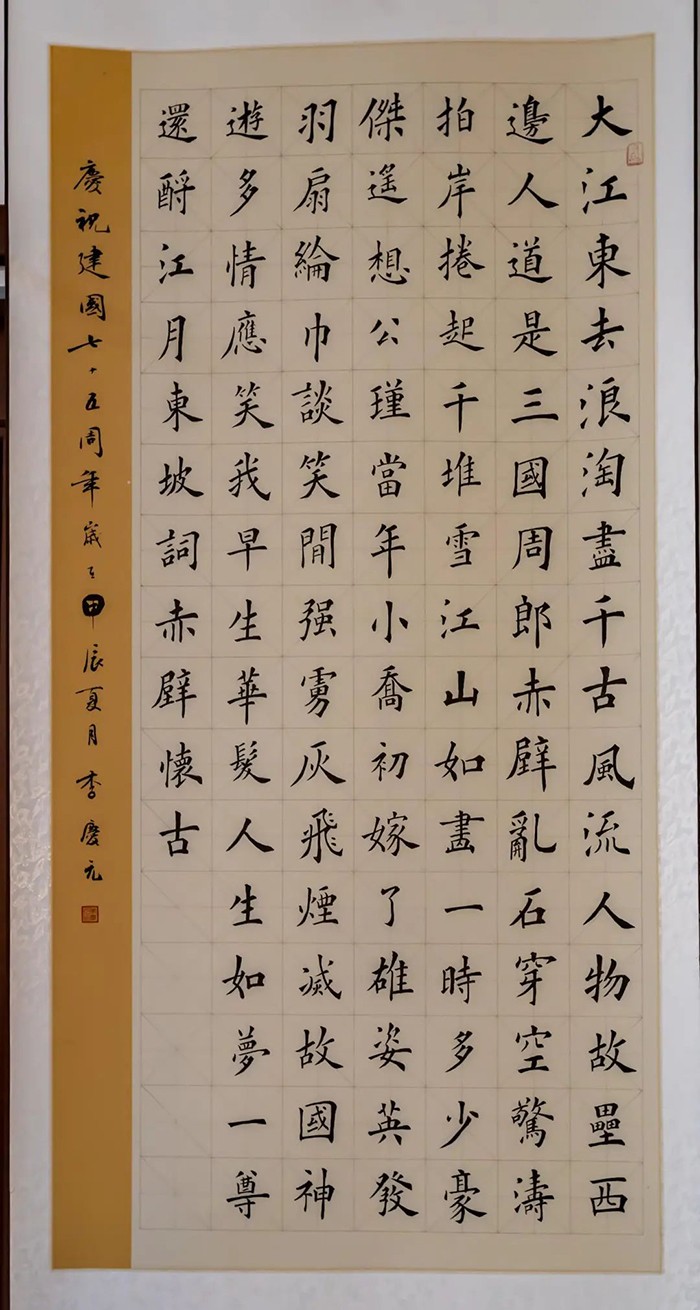 大江東去浪淘盡千古風流人物故壘西
邊人道是三國周郎赤壁亂石穿空驚濤
拍岸捲起千堆雪江山如畫一時多少豪
傑遥想公瑾當年小喬初嫁了雄姿英發
羽扇綸巾談笑間强虜灰飛煙滅故國神
遊多情應笑我早生華髮人生如夢一尊
還酹江月東坡詞赤壁懷古
慶祝建國七十五周年歲在甲辰夏月李慶元